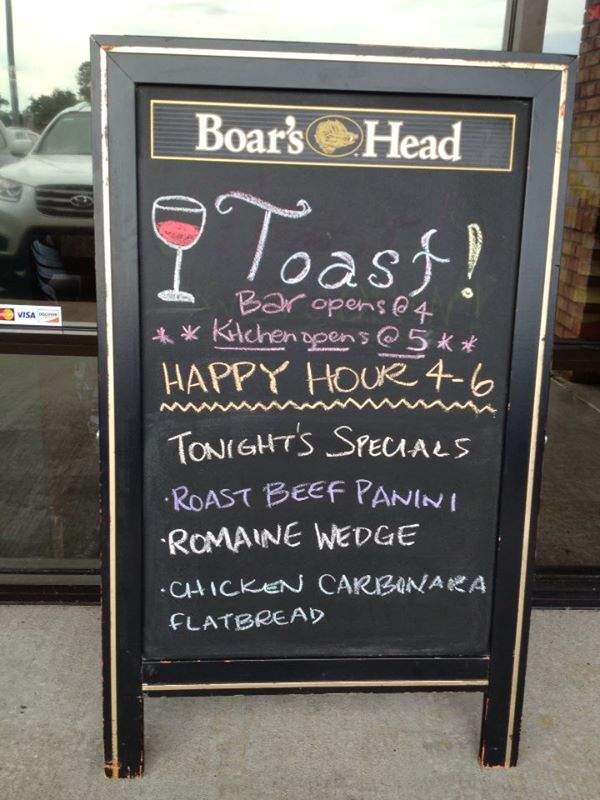 Boar's Head
Toast!
Bar opens @ 4
** Kitchen opens @ 5 **
HAPPY HOUR 4-6
TONIGHT'S SPECIALS
·ROAST BEEF PANINI
·ROMAINE WEDGE
·CHICKEN CARBONARA
FLATBREAD
VISA